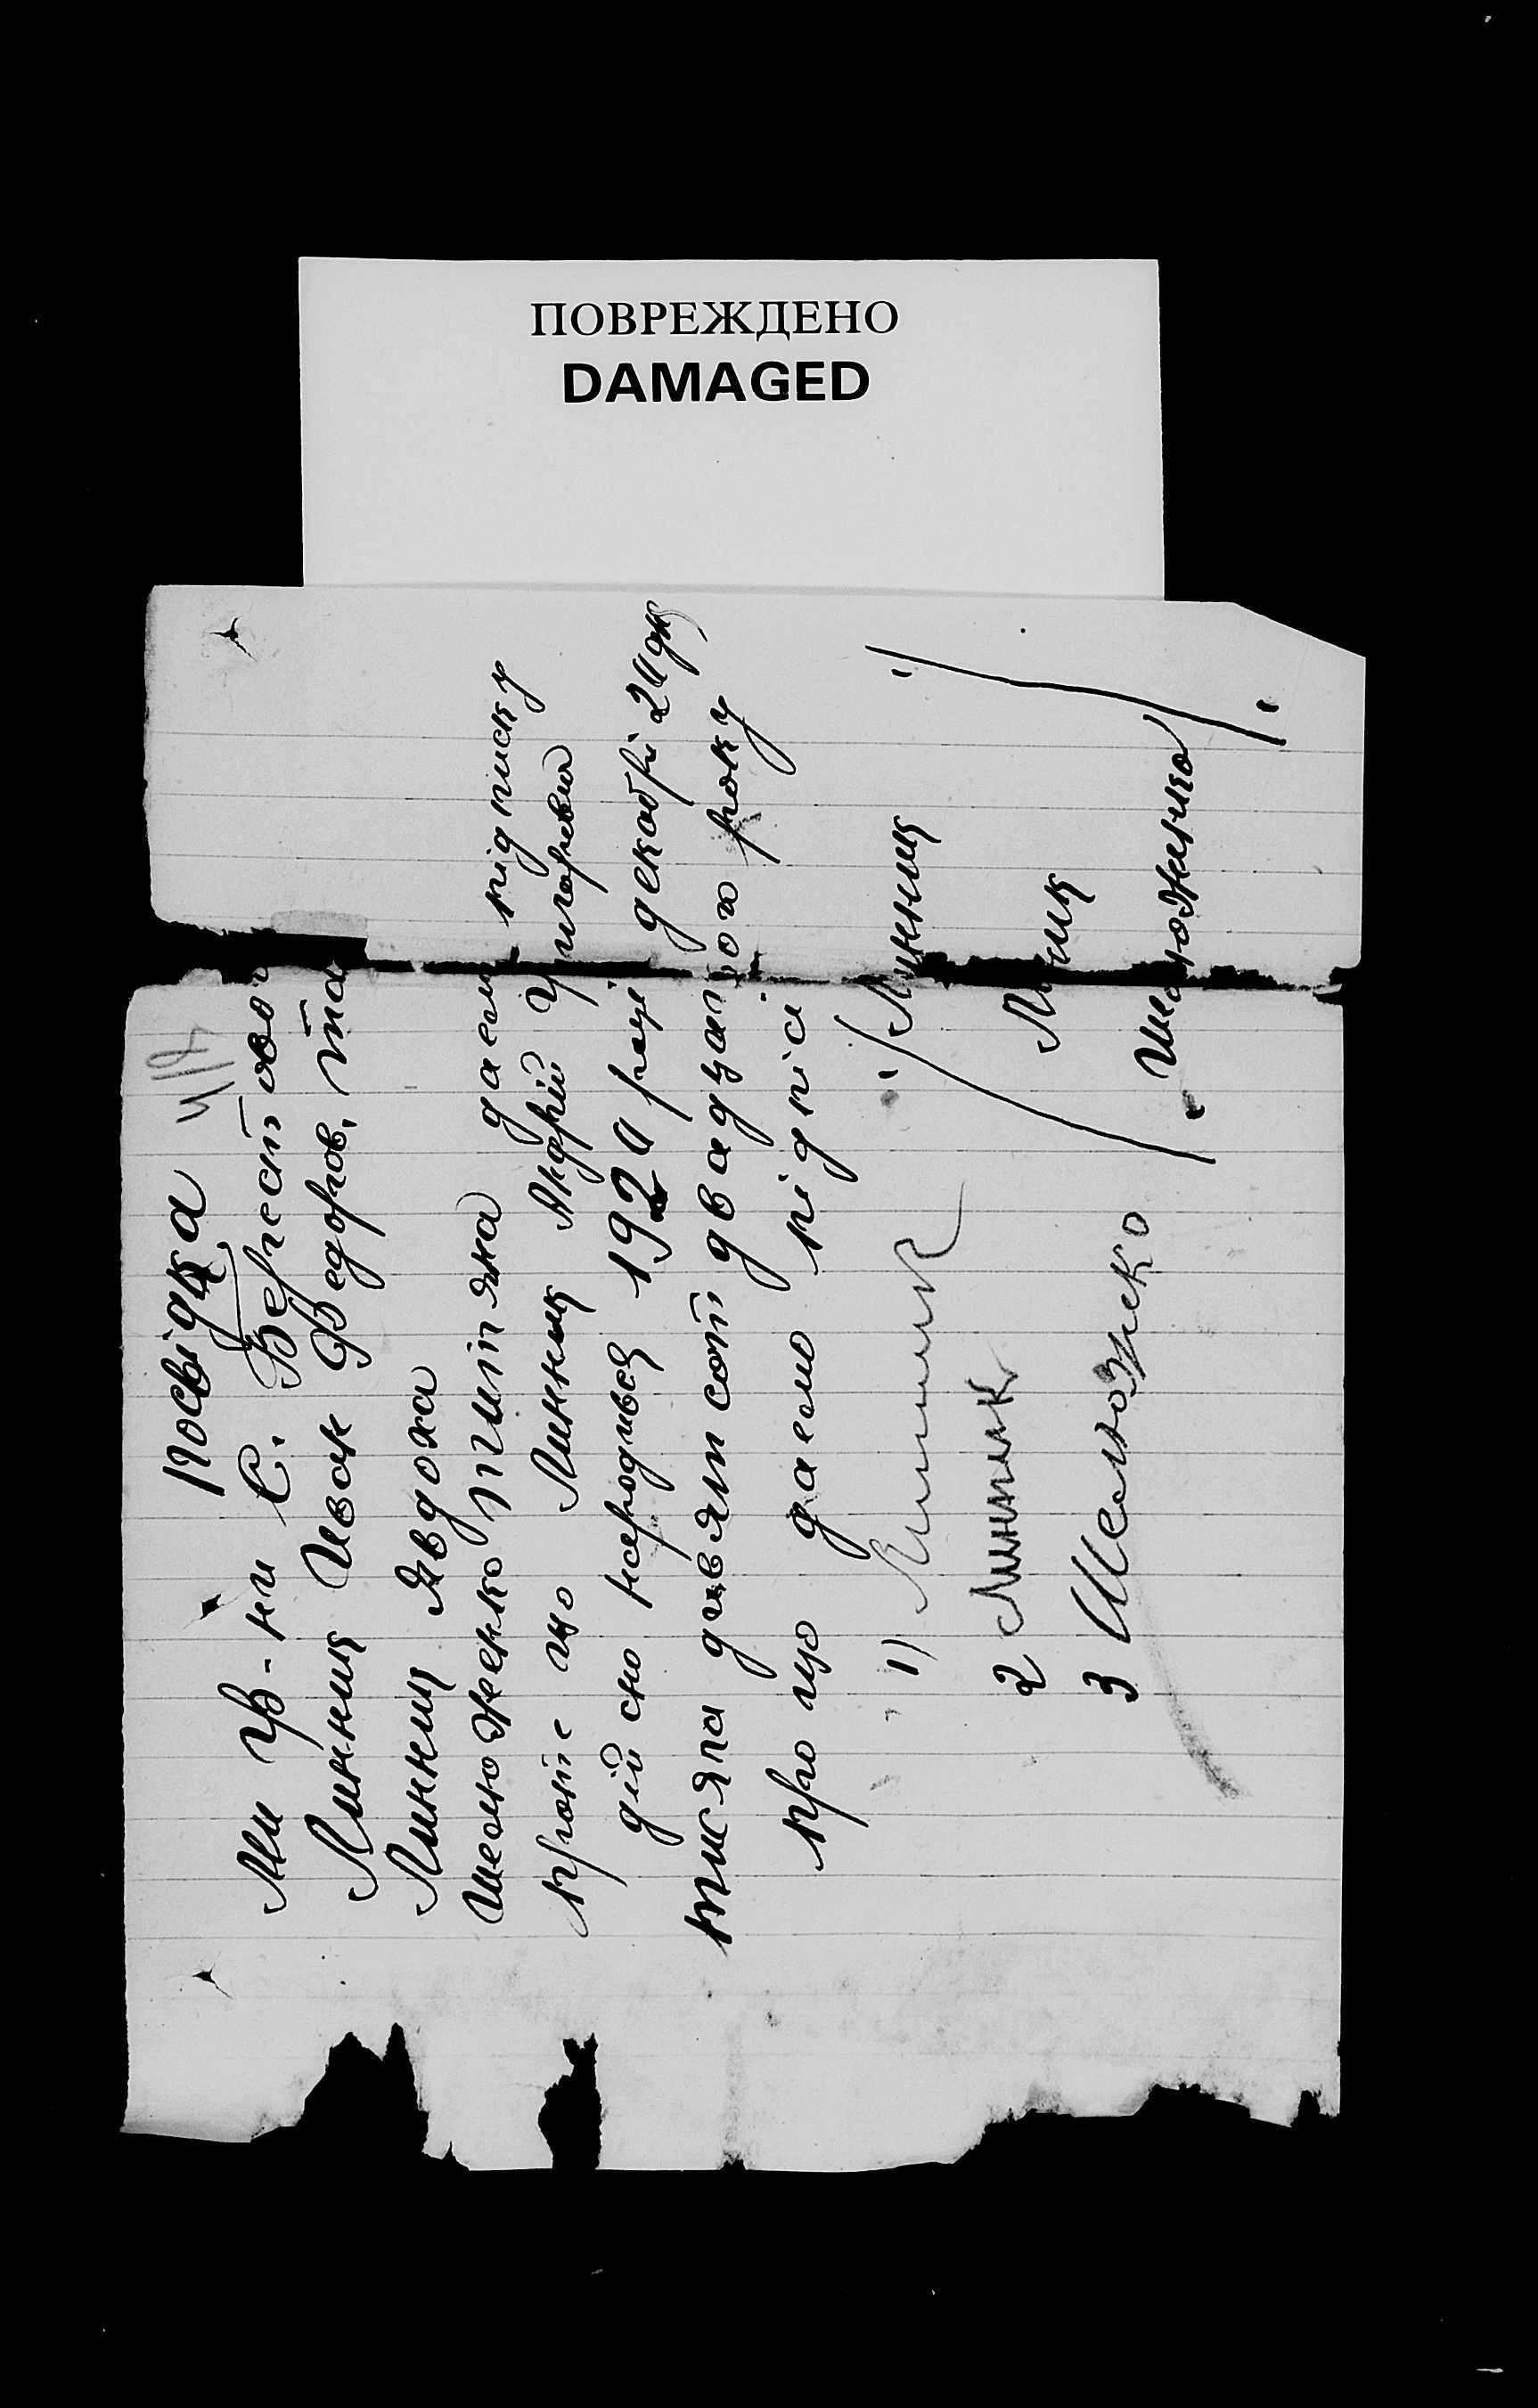 ПОВРЕЖДЕНО
DAMAGED
Посвідка
Ми гр-ни С. Берестово
Линник Иван Федоров, та
Линник Явдоха
Шелюженко Питяна даем підписку
проте що Линник Андрій Игоревич
дійсно народився 1920 році декабрі 20 дня
тисяча девятсот двадцатого року
про що даемо підпісі
1) Линник / Линник /
2 Линник Линик
3 Шелюженко Шелюженко